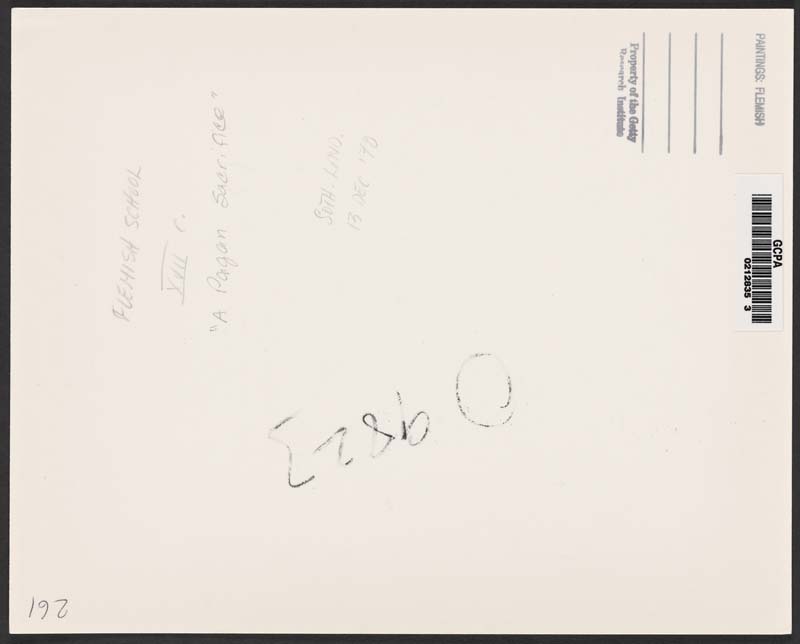 PAINTINGS: FLEMISH
Property of the Getty
Research Institute
GCPA
0212835 3
FLEMISH SCHOOL
XVIII C.
"A Pagan Sacrifice"
SOTH. LOND.
13 DEC '70
261